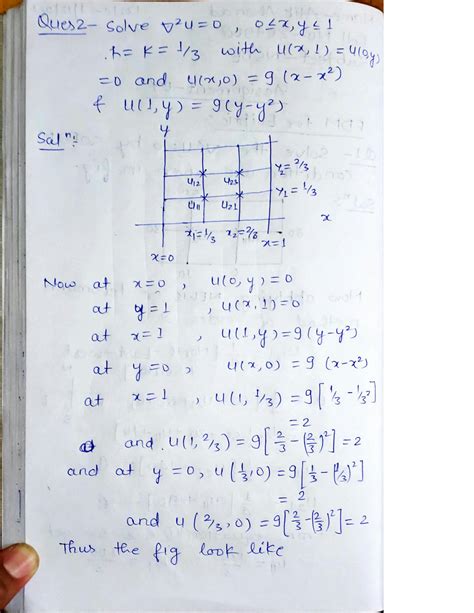 Ques2- Solve ∇²u = 0 , 0≤x,y≤1
h = K = 1/3 with u(x,1) = u(0,y)
= 0 and u(x,0) = 9 (x-x²)
& u(1,y) = 9(y-y²)
Solⁿ:-
y
y₂=2/3
u₁₂ u₂₂
y₁=1/3
u₁₁ u₂₁
x
x₁=1/3 x₂=2/3
x=1
x=0
Now at x=0 , u(0,y)=0
at y=1 , u(x,1)=0
at x=1 , u(1,y)=9(y-y²)
at y=0 , u(x,0) = 9 (x-x²)
at x=1 , u(1,1/3) = 9[1/3 - 1/3²]
= 2
and u(1,2/3) = 9[2/3 - (2/3)²] = 2
and at y=0, u(1/3,0) = 9[1/3 - (1/3)²]
= 2
and u(2/3,0) = 9[2/3 - (2/3)²] = 2
Thus the fig look like